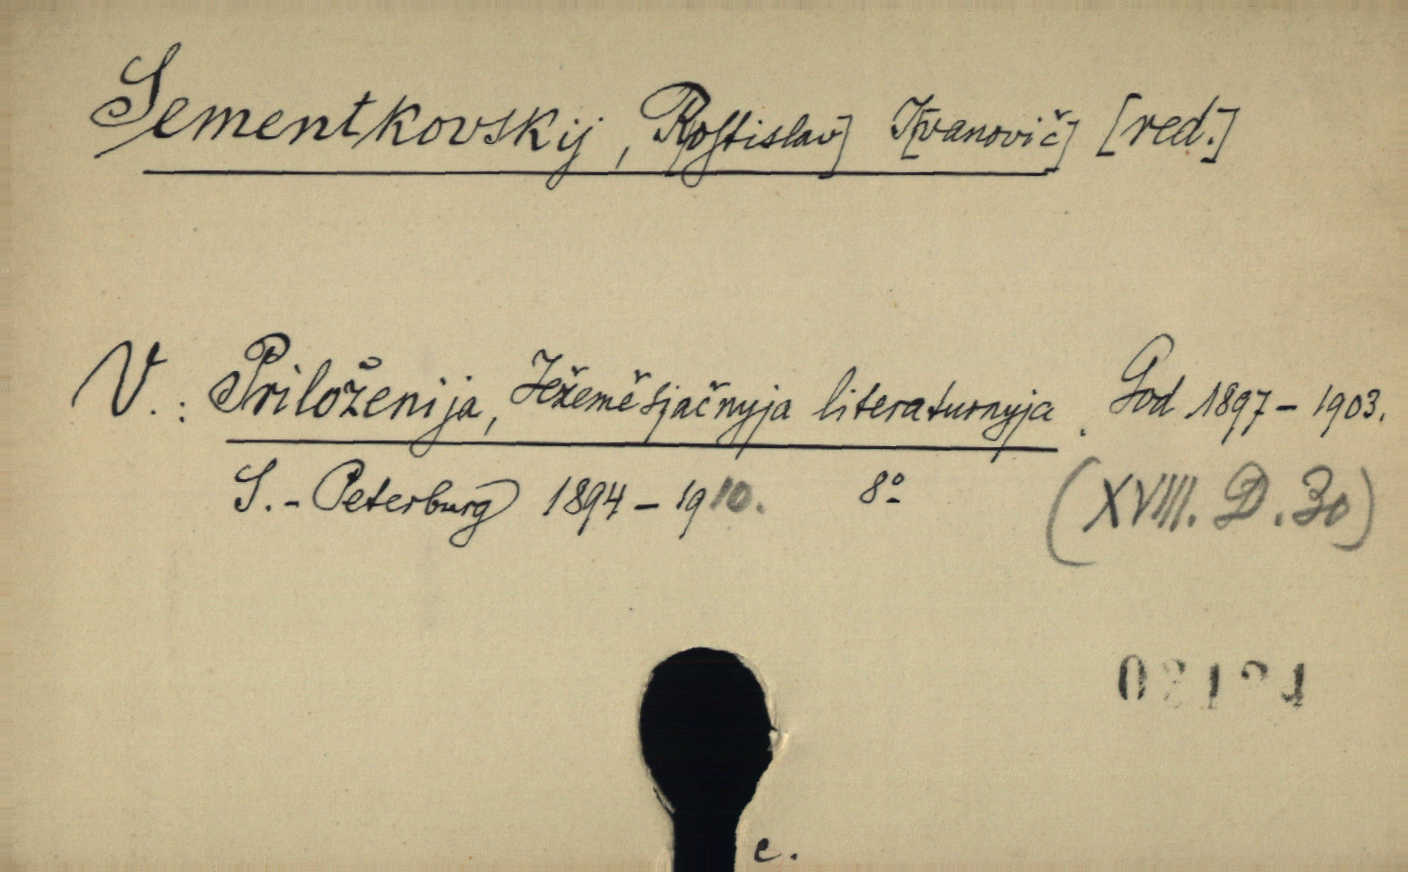 Sementkovskij, R[ostislav] I[vanovič] [red.]
V.: Priloženija, Ježeměsjačnyja literaturnyja. God 1897–1903.
S.-Peterburg 1894–1910. 8º (XVIII. D. 30)
e.